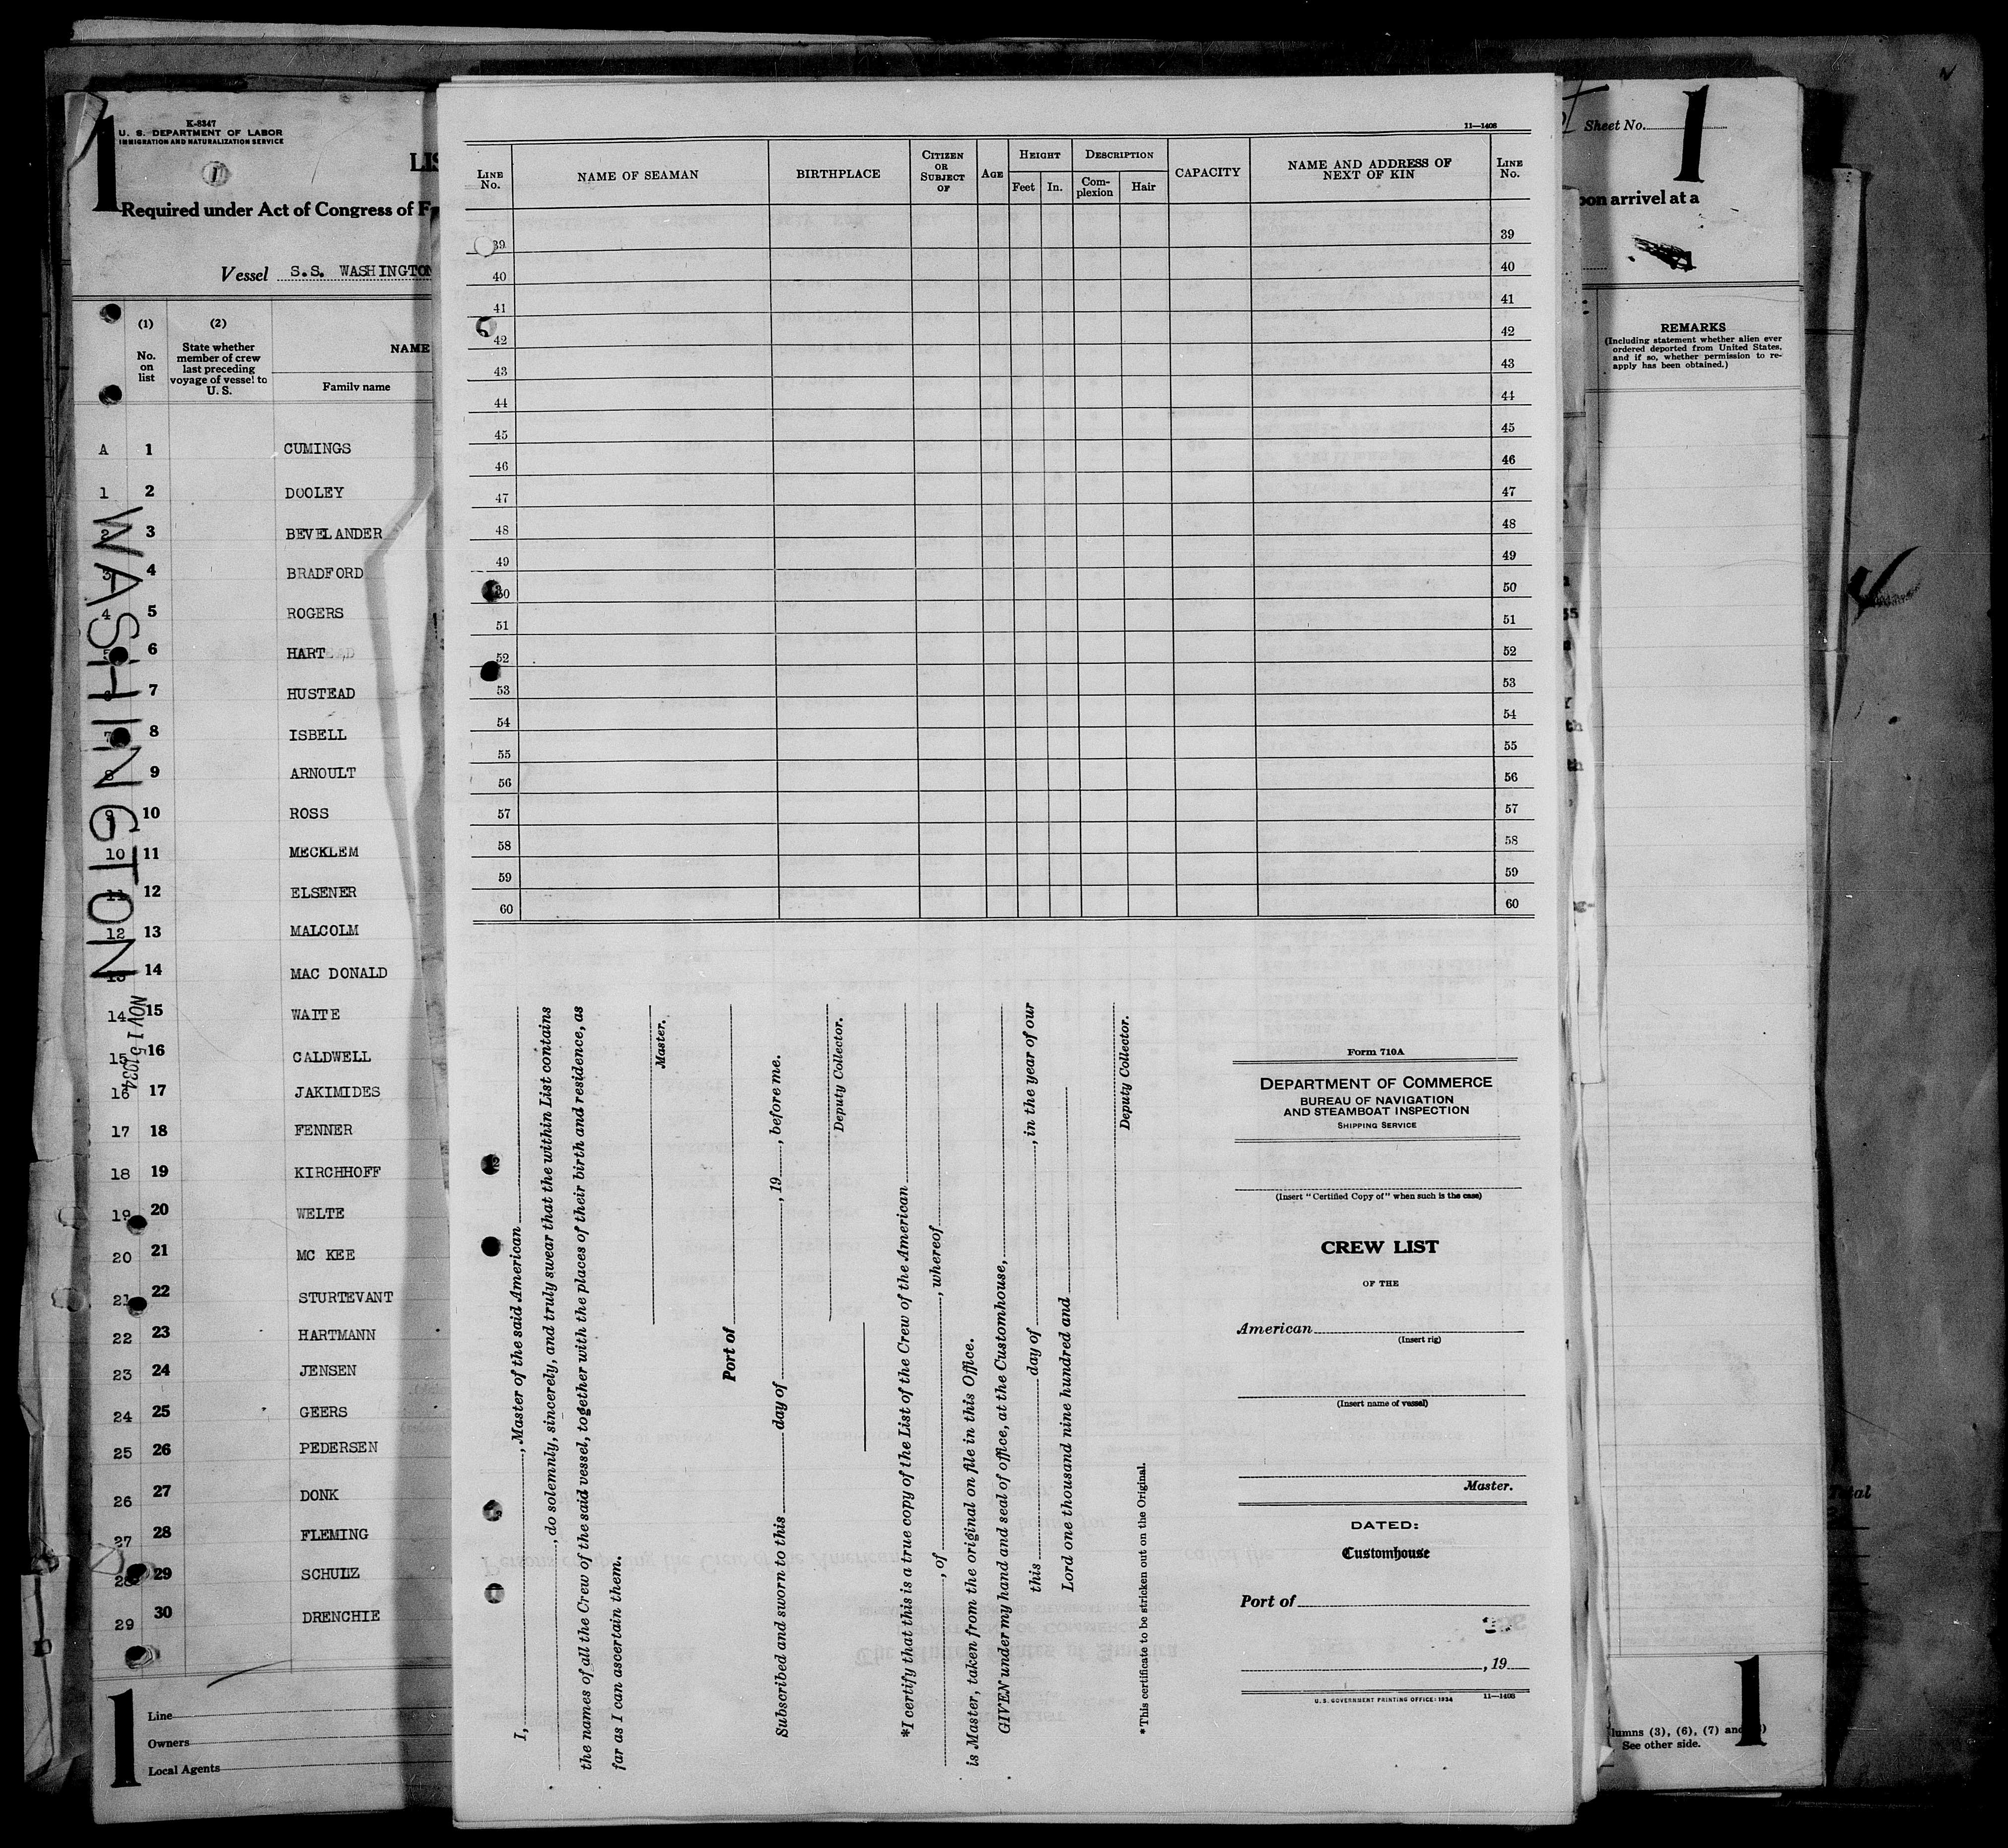 1
K-8347
U. S. DEPARTMENT OF LABOR
IMMIGRATION AND NATURALIZATION SERVICE
1
LIS
Required under Act of Congress of F
Vessel S.S. WASHINGTON
(1) (2)
No. on list
State whether member of crew last preceding voyage of vessel to U. S.
NAME
Family name
A 1 CUMINGS
1 2 DOOLEY
2 3 BEVELANDER
3 4 BRADFORD
4 5 ROGERS
5 6 HART
6 7 HUSTEAD
7 8 ISBELL
8 9 ARNOULT
9 10 ROSS
10 11 MECKLEM
11 12 ELSENER
12 13 MALCOLM
13 14 MAC DONALD
14 15 WAITE
15 16 CALDWELL
16 17 JAKIMIDES
17 18 FENNER
18 19 KIRCHHOFF
19 20 WELTE
20 21 MC KEE
21 22 STURTEVANT
22 23 HARTMANN
23 24 JENSEN
24 25 GEERS
25 26 PEDERSEN
26 27 DONK
27 28 FLEMING
28 29 SCHULZ
29 30 DRENCHIE
WASHINGTON
NOV 15 1934
Line
Owners
Local Agents
1
11—1408
LINE No.
NAME OF SEAMAN
BIRTHPLACE
CITIZEN OR SUBJECT OF
AGE
HEIGHT
Feet In.
DESCRIPTION
Complexion Hair
CAPACITY
NAME AND ADDRESS OF NEXT OF KIN
LINE No.
39 39
40 40
41 41
42 42
43 43
44 44
45 45
46 46
47 47
48 48
49 49
50 50
51 51
52 52
53 53
54 54
55 55
56 56
57 57
58 58
59 59
60 60
I, , Master of the said American
, do solemnly, sincerely, and truly swear that the within List contains
the names of all the Crew of the said vessel, together with the places of their birth and residence, as
far as I can ascertain them.
Master.
Port of
Subscribed and sworn to this day of , 19 , before me.
Deputy Collector.
*I certify that this is a true copy of the List of the Crew of the American
, of , whereof
is Master, taken from the original on file in this Office.
GIVEN under my hand and seal of office, at the Customhouse,
this day of , in the year of our
Lord one thousand nine hundred and
Deputy Collector.
*This certificate to be stricken out on the Original.
Form 710A
DEPARTMENT OF COMMERCE
BUREAU OF NAVIGATION
AND STEAMBOAT INSPECTION
SHIPPING SERVICE
(Insert "Certified Copy of" when such is the case)
CREW LIST
OF THE
American
(Insert rig)
(Insert name of vessel)
Master.
DATED:
Customhouse
Port of
, 19
U.S. GOVERNMENT PRINTING OFFICE: 1934 11—1408
Sheet No.
1
pon arrivel at a
REMARKS
(Including statement whether alien ever
ordered deported from United States,
and if so, whether permission to re-
apply has been obtained.)
lumns (3), (6), (7) and
See other side.
1
Total